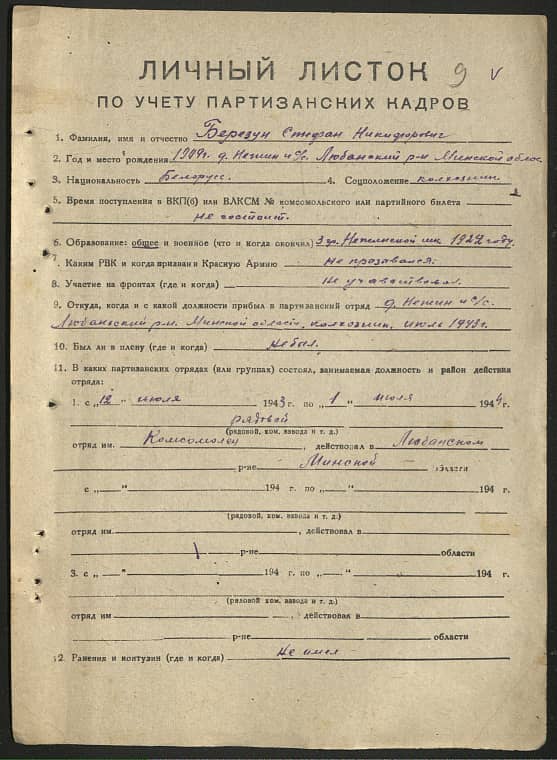 ЛИЧНЫЙ ЛИСТОК 9 v
ПО УЧЕТУ ПАРТИЗАНСКИХ КАДРОВ
1. Фамилия, имя и отчество Березун Стефан Никифорович
2. Год и место рождения 1909г. д. Нежин н/с. Любанский р-н Минской облас.
3. Национальность Белорусс. 4. Соцположение колхозник.
5. Время поступления в ВКП(б) или ВЛКСМ № комсомольского или партийного билета
не состоит.
6. Образование: общее и военное (что и когда окончил) 3 гр. шк 1922 году.
7. Каким РВК и когда призван в Красную Армию не прозовался.
8. Участие на фронтах (где и когда) не участвовал.
9. Откуда, когда и с какой должности прибыл в партизанский отряд д. Нежин н/с.
Любанский р-н. Минской области, колхозник, июль 1943г.
10. Был ли в плену (где и когда) не был.
11. В каких партизанских отрядах (или группах) состоял, занимаемая должность и район действия
отряда:
1. с „12" июля 1943 г. по „1" июля 1944
рядовой
(рядовой, ком. взвода и т. д.)
отряд им. Комсомолец, действовал в Любанском
р-не Минской области
с „ " 194 г. по „ " 194 г.
(рядовой, ком. взвода и т. д.)
отряд им. , действовал в
р-не области
3. с „ " 194 г. по „ " 194 г.
(рядовой, ком. взвода и т. д.)
отряд им , действовал в
р-не области
12. Ранения и контузии (где и когда) не имел